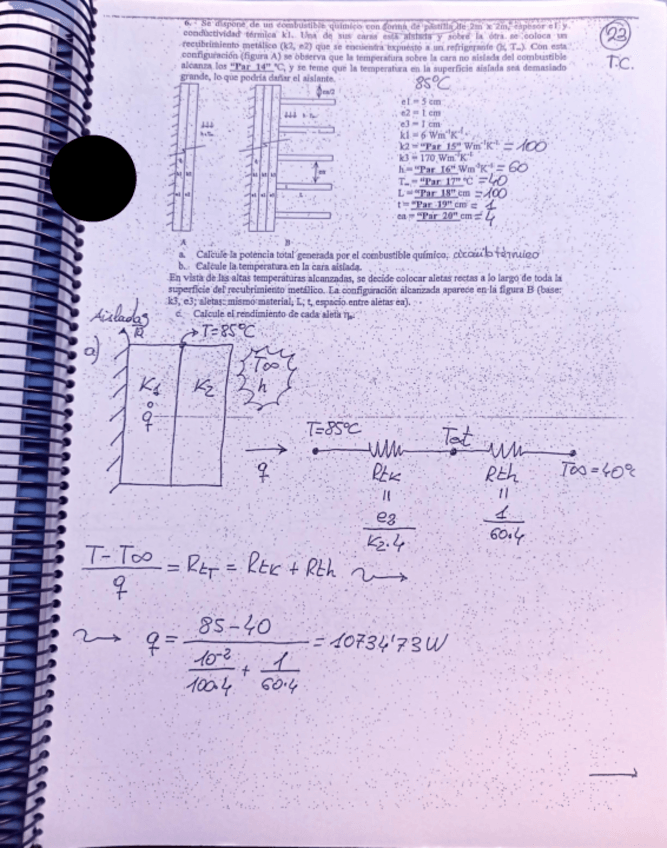 6. - Se dispone de un combustible químico con forma de pastilla de 2m x 2m, espesor e1 y
conductividad térmica k1. Una de sus caras está aislada y sobre la otra se coloca un
recubrimiento metálico (k2, e2) que se encuentra expuesto a un refrigerante (h, T∞). Con esta
configuración (figura A) se observa que la temperatura sobre la cara no aislada del combustible
alcanza los "Par 14" °C, y se teme que la temperatura en la superficie aislada sea demasiado
grande, lo que podría dañar el aislante.
23
T.C.
85°C
e1 = 5 cm
e2 = 1 cm
e3 = 1 cm
k1 = 6 Wm⁻¹K⁻¹
k2 = "Par 15" Wm⁻¹K⁻¹ = 100
k3 = 170 Wm⁻¹K⁻¹
h = "Par 16" Wm⁻²K⁻¹ = 60
T∞ = "Par 17" °C = 40
L = "Par 18" cm = 100
t = "Par 19" cm = 1
ea = "Par 20" cm = 4
A B
a. Calcule la potencia total generada por el combustible químico, circuito térmico
b. Calcule la temperatura en la cara aislada.
En vista de las altas temperaturas alcanzadas, se decide colocar aletas rectas a lo largo de toda la
superficie del recubrimiento metálico. La configuración alcanzada aparece en la figura B (base:
k3, e3; aletas: mismo material, L; t, espacio entre aletas ea).
c. Calcule el rendimiento de cada aleta
Aisladas
a)
T=85°C
K1 K2 T∞
q h
q
T=85°C Tat T∞=40°C
Rtk Rth
= =
e3/K2·4 1/60·4
T-T∞/q = RtT = Rtk + Rth
q = 85-40/(10⁻²/100·4 + 1/60·4) = 10734'73W